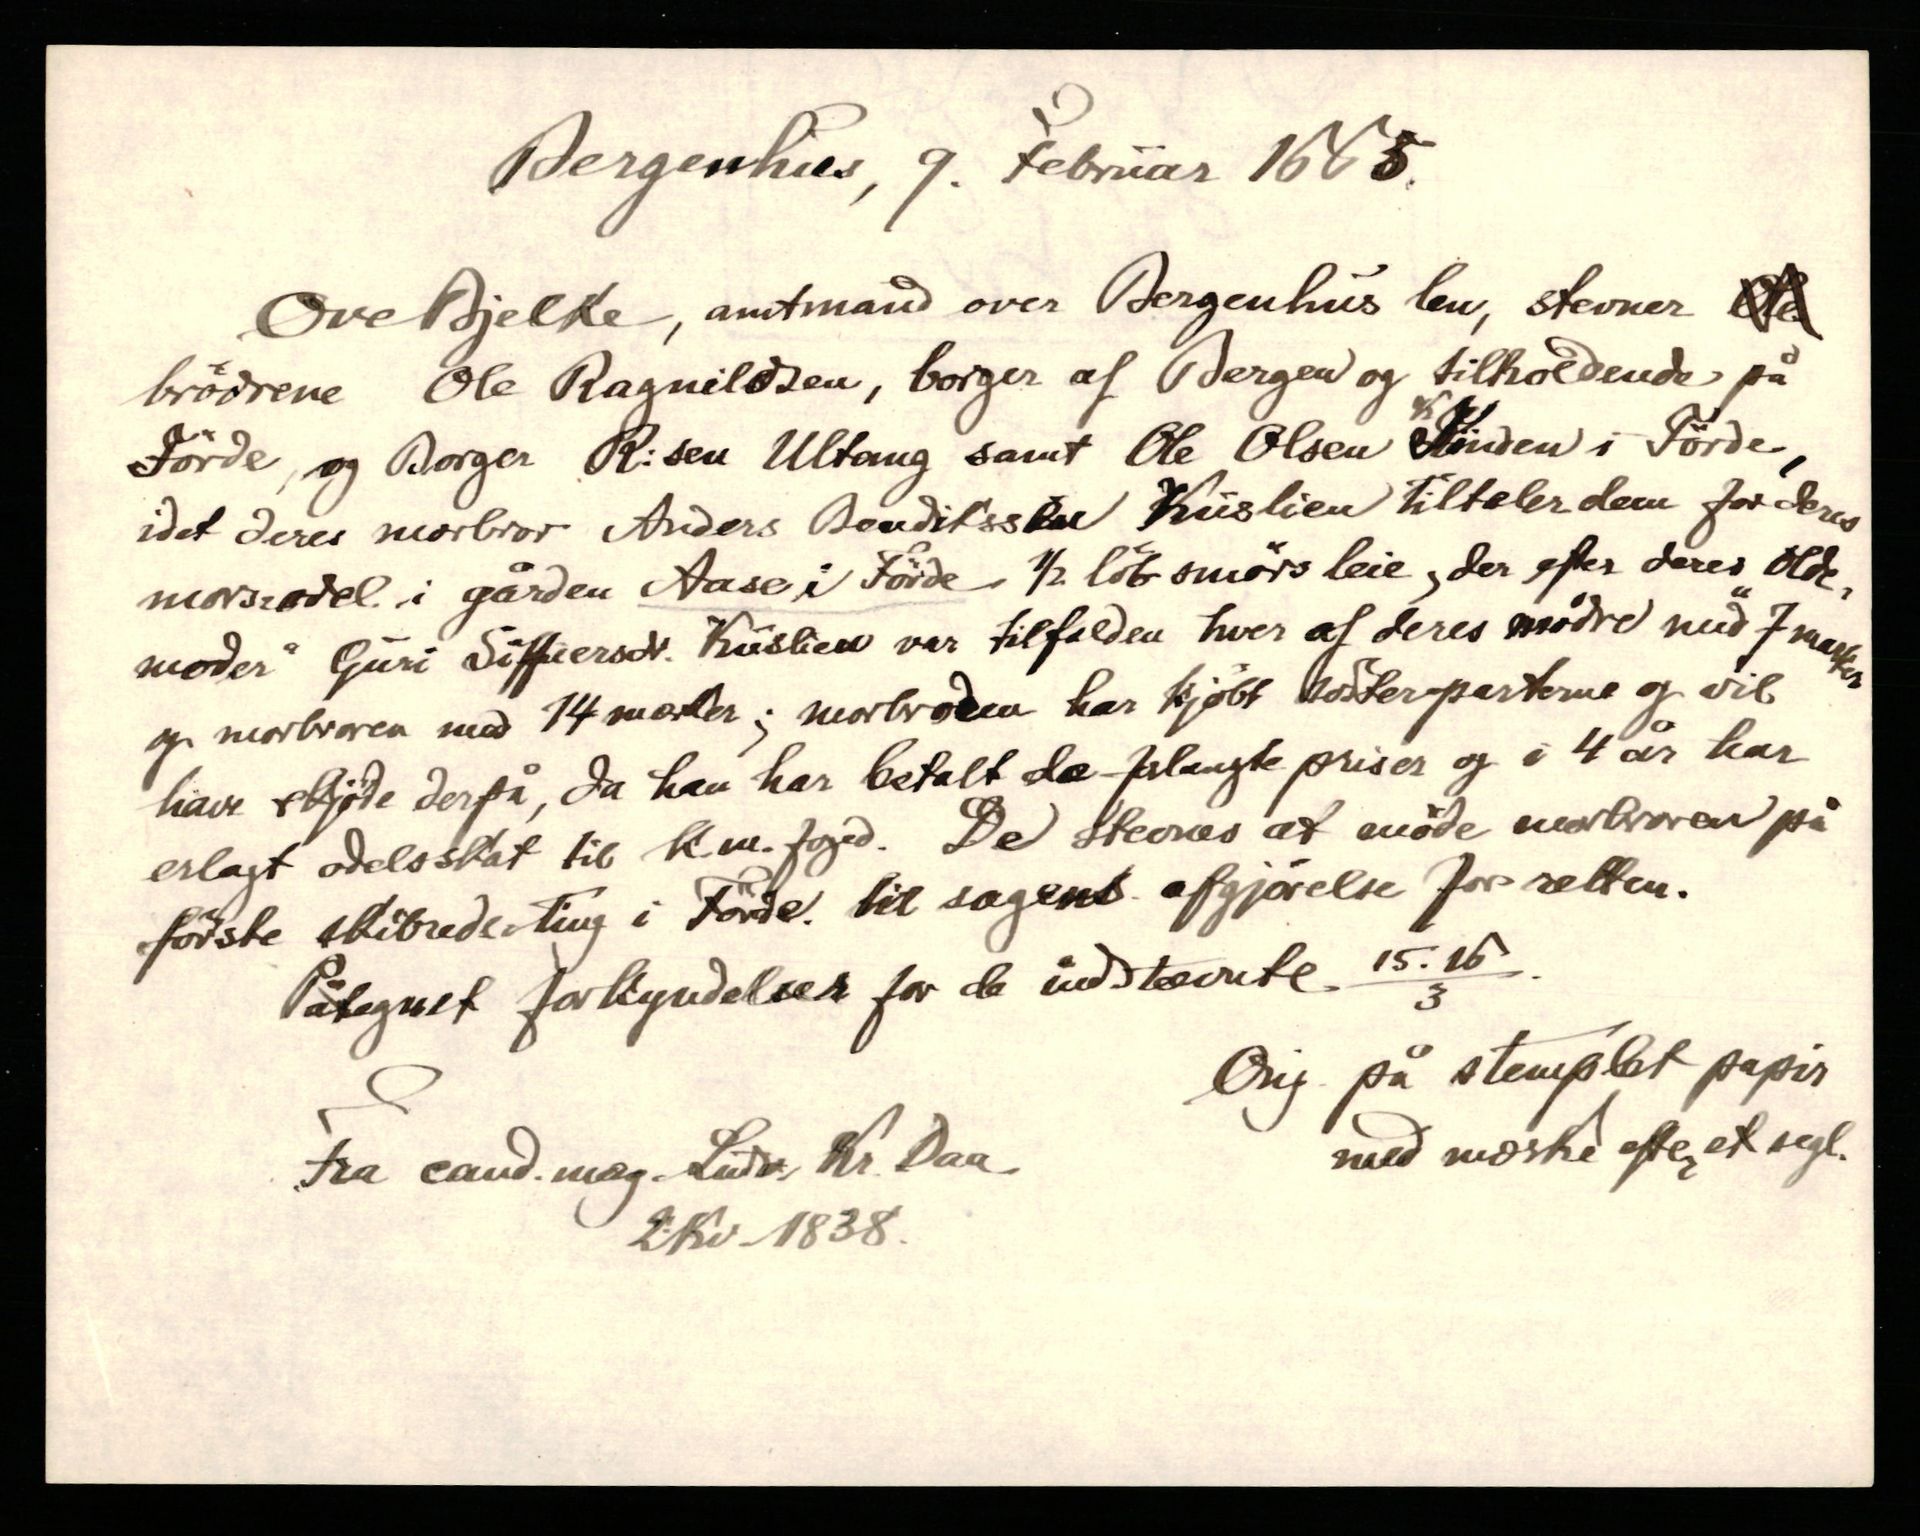 Bergenhus, 9. Februar 1665.
Ove Bjelke, amtmand over Bergenhus len, stevner
brödrene Ole Ragnildsen, borger af Bergen og tilholdende på
Förde, og Borger R:sen Ultang samt Ole Olsen Kinden i Förde,
idet deres morbror Anders Bendikssen Kuslien tiltaler dem for deres
morsodel i gården Aase i Förde 1/2 löb smörs leie, der efter deres "olde-
moder" Guri Siffuersdr. Kuslien var tilfalden hver af deres mödre med 7 marker
og morbroren med 14 marker; morbroderen har kjöbt söster-parterne og vil
have skjöde derpå, da han har betalt de forlangte priser og i 4 år har
erlagt odelsskat til k.m. foged. De stevnes at möde morbroren på
förste skibrede-ting i Förde til sagens afgjörelse for retten.
Påtegnet forkyndelser for de indstævnte 15. 16/3.
Orig. på stemplet papir
med mærke efter et segl.
Fra cand. mag. Ludv. Kr. Daa
2. Kv. 1838.